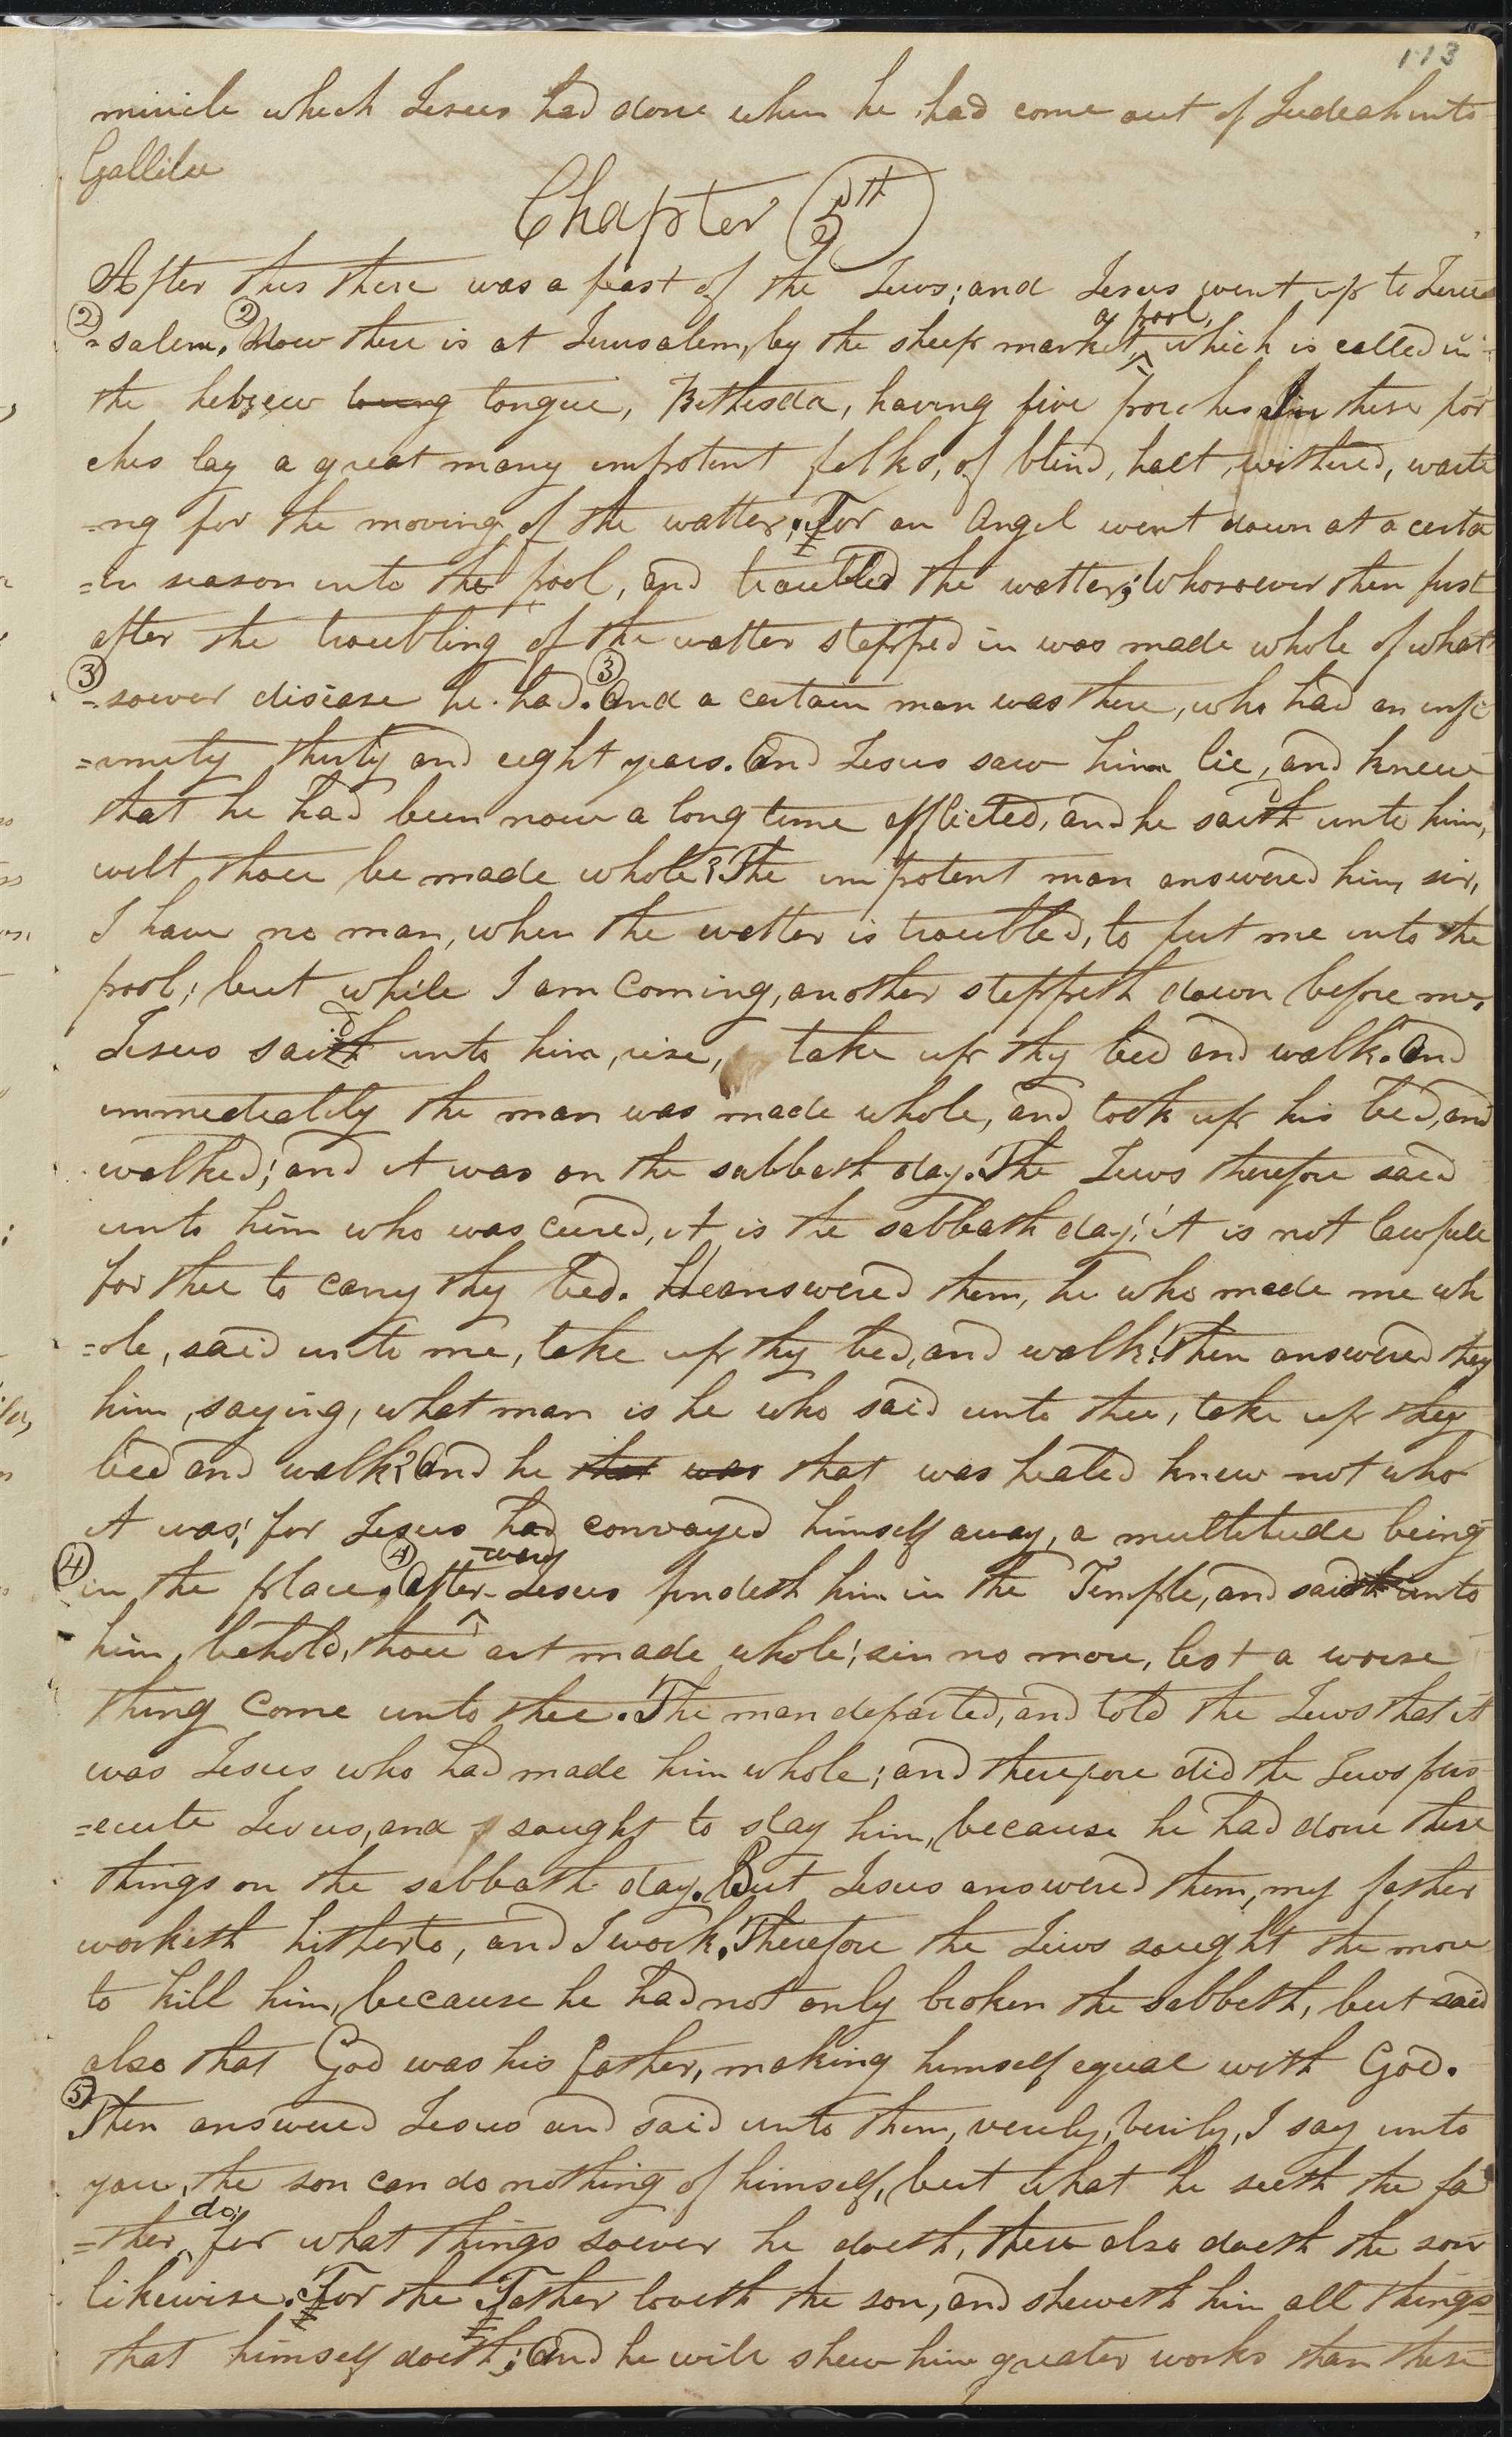 113
miricle which Jesus had done when he had come out of Judeah into
Gallilee
Chapter 5th
After this there was a feast of the Jews; and Jesus went up to Jeru
② =salem. ② Now there is at Jerusalem, by the sheep market, a pool, which is called in
the hebrew toung tongue, Bethesda, having five porches. In these por
ches lay a great many impotent folks, of blind, halt, withered, waite
=ng for the moving of the watter; For an Angel went down at a certa
=in season into the pool, and troubled the watter; Whosoever then first
after the troubling of the watter stepped in was made whole of what
③ =soever disease he had. ③ And a certain man was there, who had an infi
=rmity thirty and eight years. And Jesus saw him lie, and knew
that he had been now a long time afflicted, and he saith d unto him,
wilt thou be made whole? The impotent man answered him, sir,
I have no man, when the watter is troubled, to put me into the
pool; but while I am Coming, another steppeth down before me.
Jesus saith d unto him, rise, take up thy bed and walk. And
immediatily the man was made whole, and took up his bed, and
walked; and it was on the sabbath day. The Jews therefore said
unto him who was cured, it is the sabbath day; it is not lawfull
for thee to carry thy bed. He answered them, he who made me wh
=ole, said unto me, take up thy bed, and walk. Then answered they
him, saying, what man is he who said unto thee, take up thy
bed and walk? And he that was that was healed knew not who
it was; for Jesus had convayed himself away, a multitude being
④ in the place. ④ After-ward Jesus findeth him in the Temple, and saidth unto
him, behold, thou art made whole; sin no more, lest a worse
thing Come unto thee. The man departed, and told the Jews that it
was Jesus who had made him whole; and therefore did the Jews pers
=ecute Jesus, and sought to slay him, because he had done these
things on the sabbath day. But Jesus answered them, my father
worketh hitherto, and I work. Therefore the Jews sought the more
to kill him, because he had not only broken the sabbath, but said
also that God was his father, making himself equal with God.
⑤ Then answered Jesus and said unto them, verily, verily, I say unto
you, the son can do nothing of himself, but what he seeth the fa
=ther do; for what things soever he doeth, these also doeth the son
likewise. For the Father loveth the son, and sheweth him all things
that himself doeth; And he will shew him greater works than these